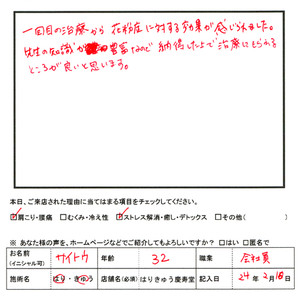 一回目の治療から 花粉症に対する効果が感じられました。
先生の知識が豊富なので 納得した上で治療にとりくめる
ところが良いと思います。
本日、ご来店された理由に当てはまる項目をチェックしてください。
☑肩こり・腰痛 □むくみ・冷え性 ☑ストレス解消・癒し・デトックス □その他( )
※ あなた様の声を、ホームページなどでご紹介してもよろしいですか? □はい □匿名で
お名前 (イニシャル可) サイトウ 年齢 32 職業 会社員
施術名 はり・きゅう 店舗名(必須) はりきゅう慶寿堂 記入日 24年2月18日